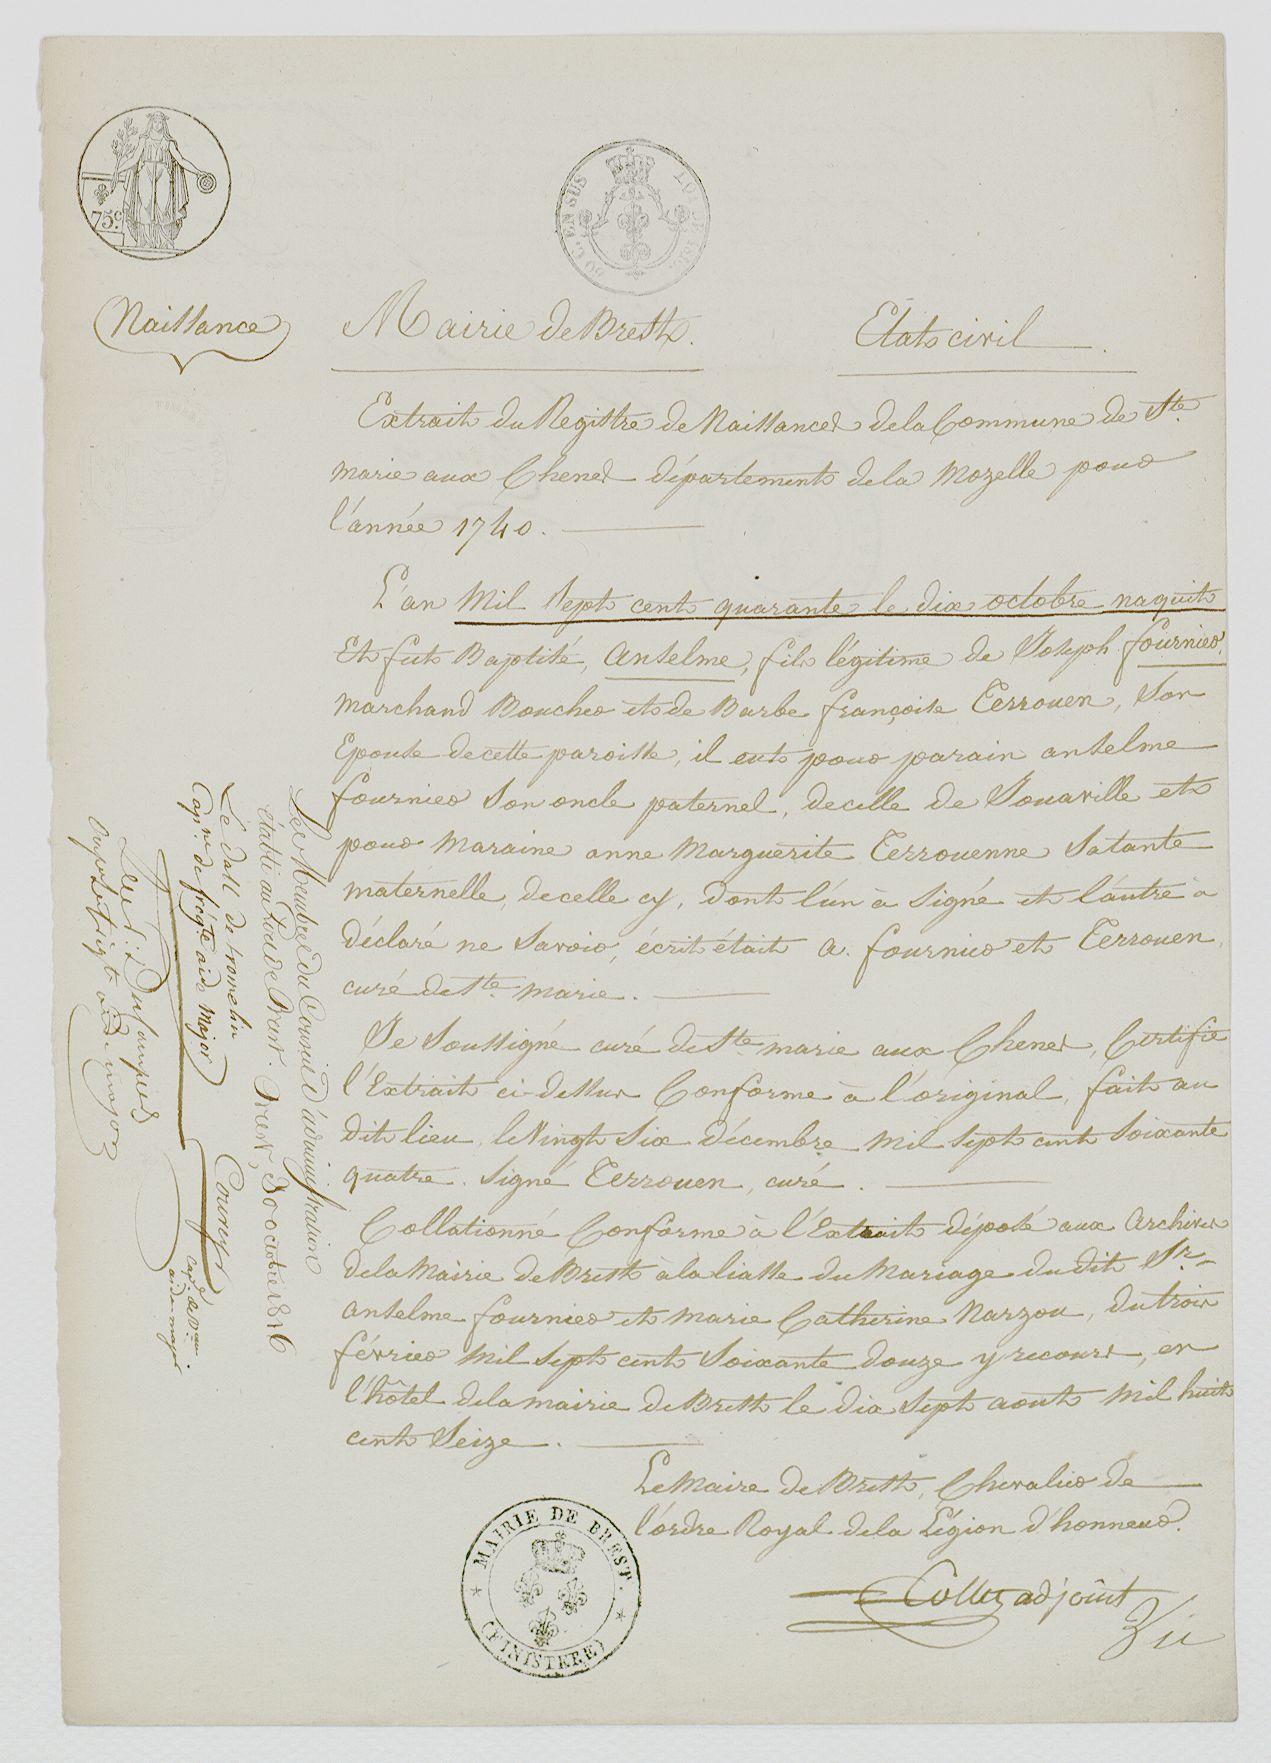 75c.
50 C. EN SUS
LOI DE 1816.
Naissance
Mairie de Brest.
Etat civil
Extrait du Registre de Naissances de la Commune de Ste.
marie aux Chenes département de la Mozelle pour
l'année 1740.
L'an Mil sept cent quarante le dix octobre naquit
Et fut Baptisé, Anselme, fils légitime de Joseph fournier,
marchand Boucher et de Barbe françoise Terrouen, Son
Epouse de cette paroisse, il eut pour parain anselme
fournier Son oncle paternel, decelle de Jouaville et
pour Maraine anne Marguerite Terrouenne Satante
maternelle, decelle cy, dont l'un à Signé et l'autre à
déclaré ne Savoir, écrit était a. fournier et Terrouen,
curé de Ste. marie.
Je Soussigné curé de Ste. marie aux Chenes, Certifie
l'Extrait ci-dessus Conforme à l'original, fait au
dit lieu, le Vingt Six décembre mil sept cent Soixante
quatre. Signé Terrouen, curé.
Collationné Conforme à l'Extrait déposé aux Archives
de la Mairie de Brest à la liasse du Mariage du dit Sr.
anselme fournier et marie Catherine Narzou, du trois
février mil sept cent Soixante douze y recours, en
l'hôtel de la mairie de Brest le dix Sept aout mil huit
cent Seize.
Le Maire de Brest, Chevalier de
l'ordre Royal de la Légion d'honneur.
Collet adjoint
MAIRIE DE BREST.
(FINISTERE)
Les Membres du Conseil d'administration
établi au Port de Brest. Brest, 30 octobre 1816
Le dall de tromelin
Capne. de frégte aide Major
Courcy
capt. de vau.
aide major
aide major